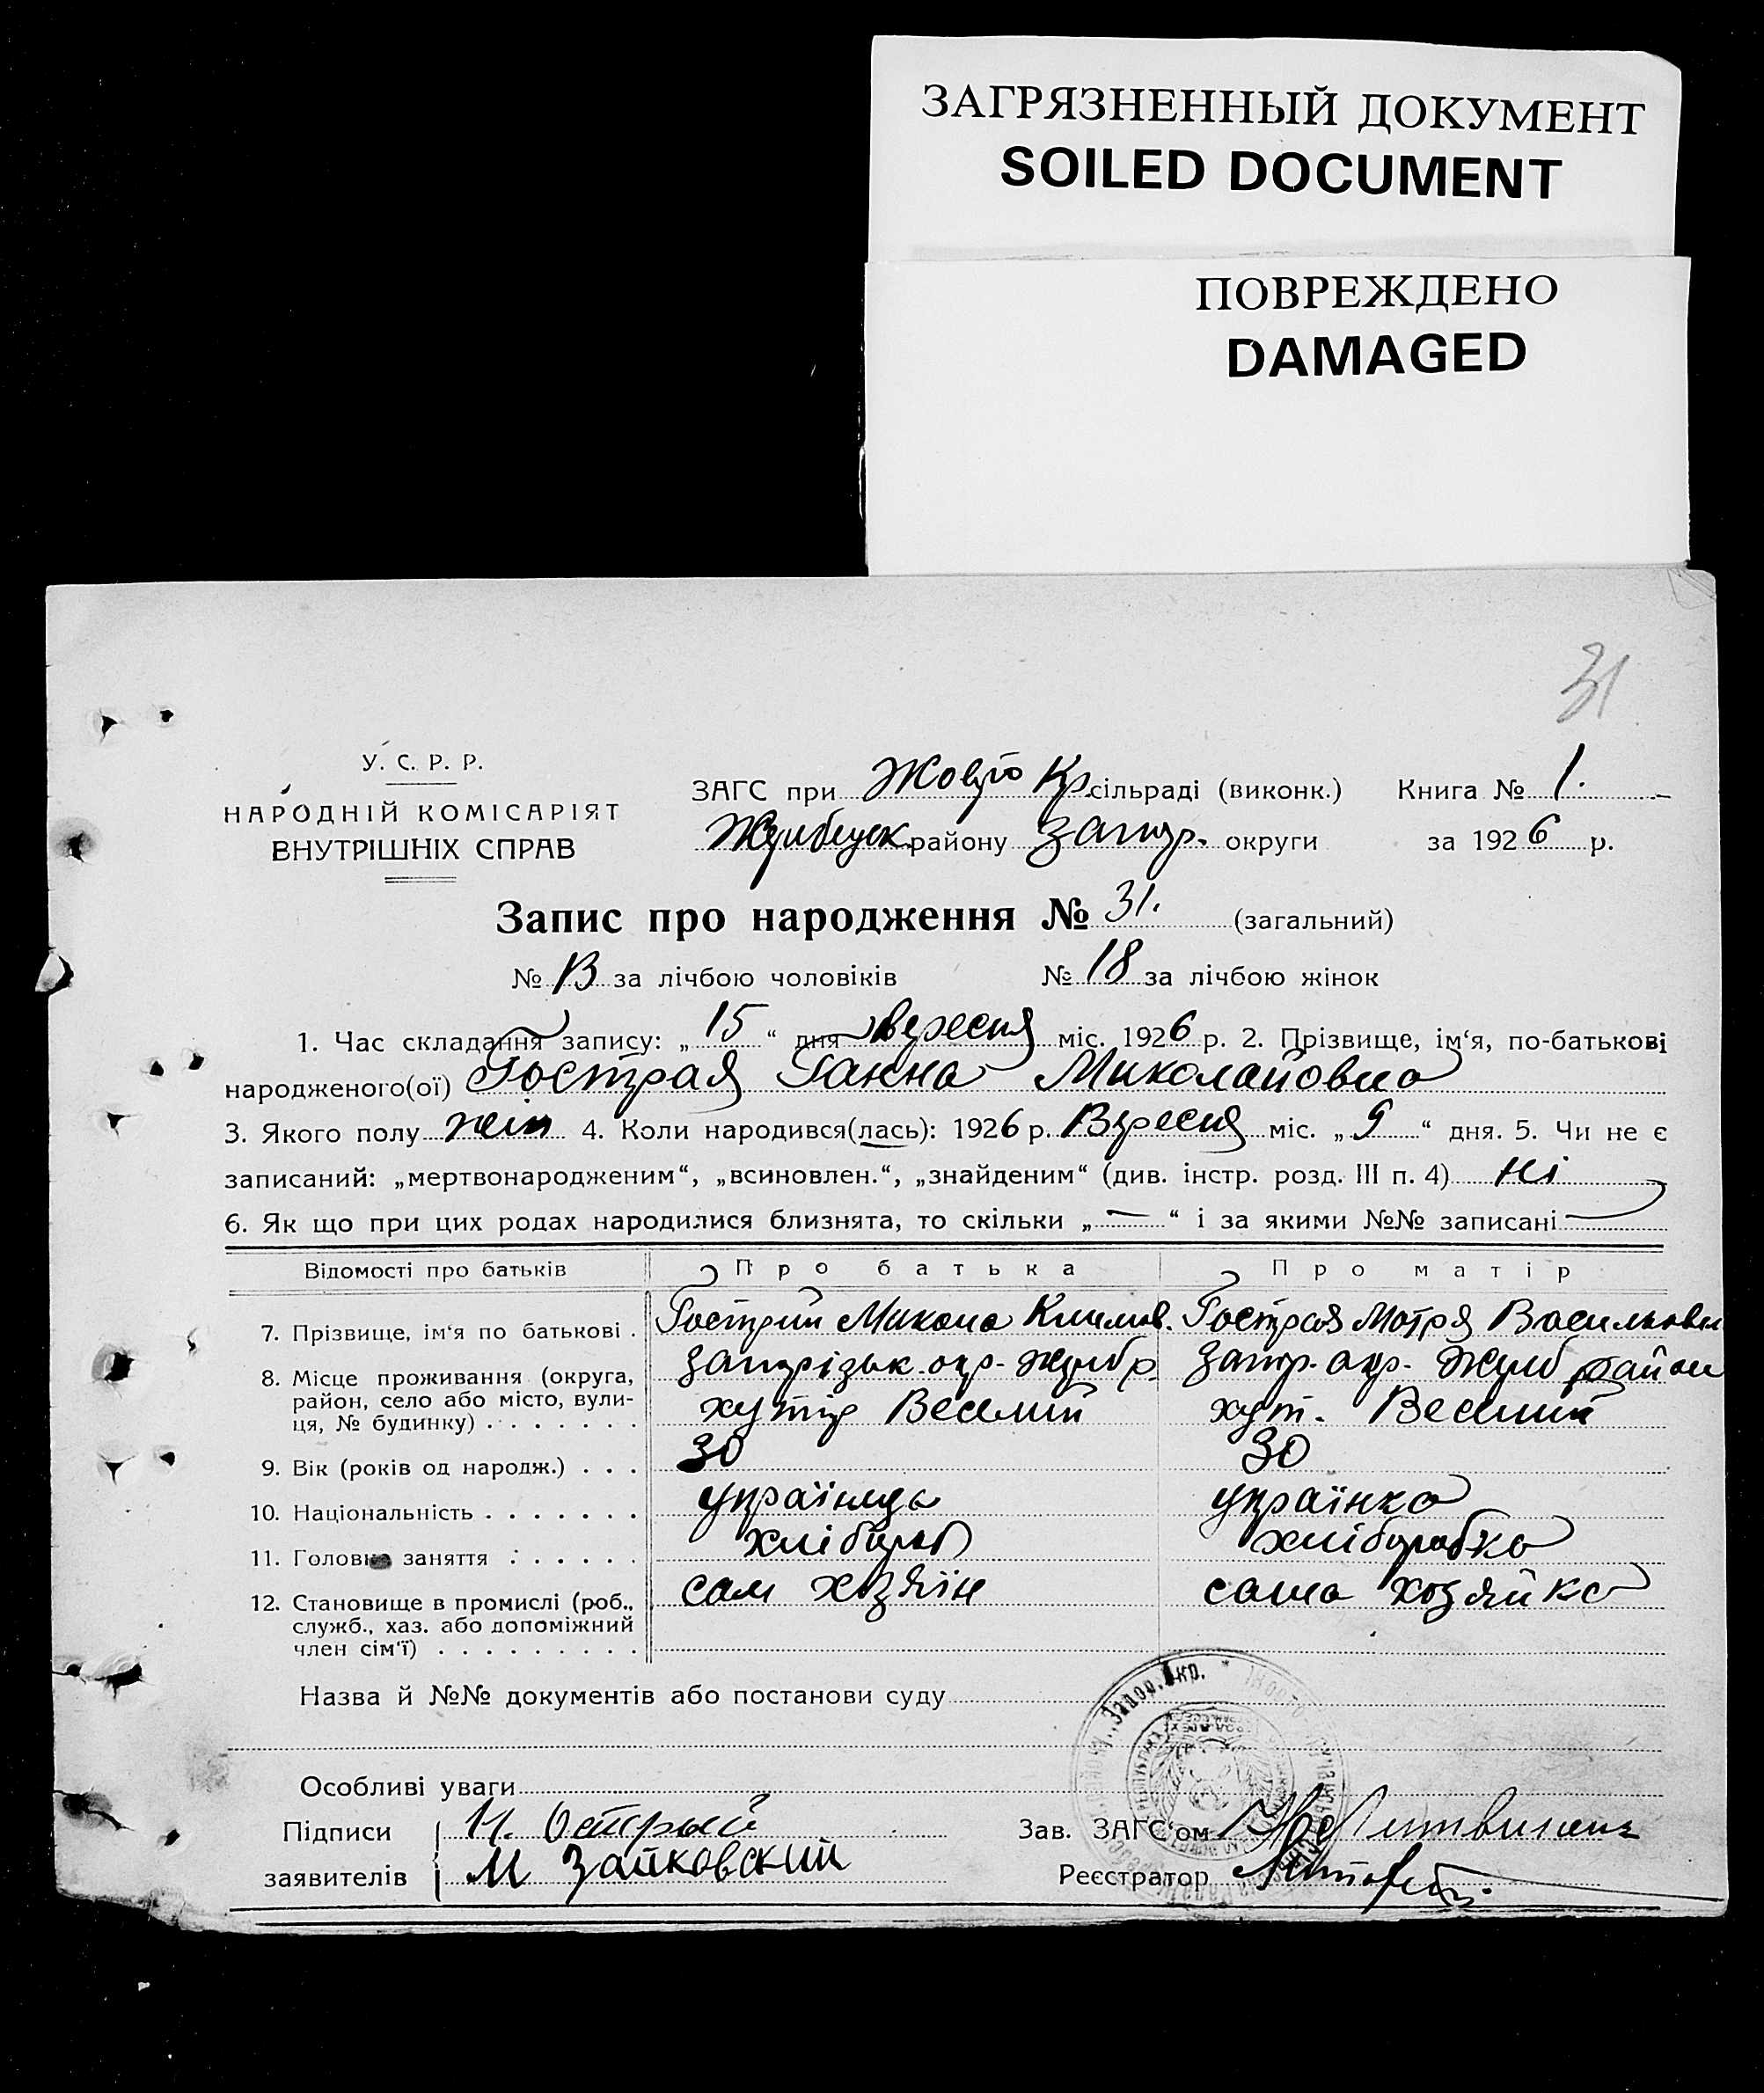 ЗАГРЯЗНЕННЫЙ ДОКУМЕНТ
SOILED DOCUMENT
ПОВРЕЖДЕНО
DAMAGED
31
У. С. Р. Р.
НАРОДНІЙ КОМІСАРІЯТ
ВНУТРІШНІХ СПРАВ
ЗАГС при Жовто Кр. сільраді (виконк.) Книга № 1.
району Запор. округи за 1926 р.
Запис про народження № 31. (загальний)
№ 13 за лічбою чоловіків № 18 за лічбою жінок
1. Час складання запису: „15“ дня вересня міс. 1926 р. 2. Прізвище, ім‘я, по-батькові
народженого(ої) Гострая Ганна Миколайовна
3. Якого полу жін 4. Коли народився(лась): 1926 р. Вересня міс. „9“ дня. 5. Чи не є
записаний: „мертвонародженим“, „всиновлен.“, „знайденим“ (див. інстр. розд. III п. 4) Ні
6. Як що при цих родах народилися близнята, то скільки „—“ і за якими №№ записані —
Відомості про батьків Про батька Про матір
7. Прізвище, ім‘я по батькові . Гострий Микола Климов. Гострая Мотря Васильовн
8. Місце проживання (округа, район, село або місто, вулиця, № будинку) . . . . . . . Запорізьк. окр. Жереб р. Запор. окр. Жереб район
хутір Веселий хут. Веселий
9. Вік (років од народж.) . . . 30 30
10. Національність . . . . . . . українець українка
11. Головне заняття . . . . . . хлібороб хліборобка
12. Становище в промислі (роб., служб., хаз. або допоміжний член сім‘ї) . . . . . . . . . сам хозяїн сама хозяйка
Назва й №№ документів або постанови суду
Запор. Окр.
Особливі уваги
Підписи заявителів Н. Острый
М Зайковский
Зав. ЗАГС‘ом
Реєстратор